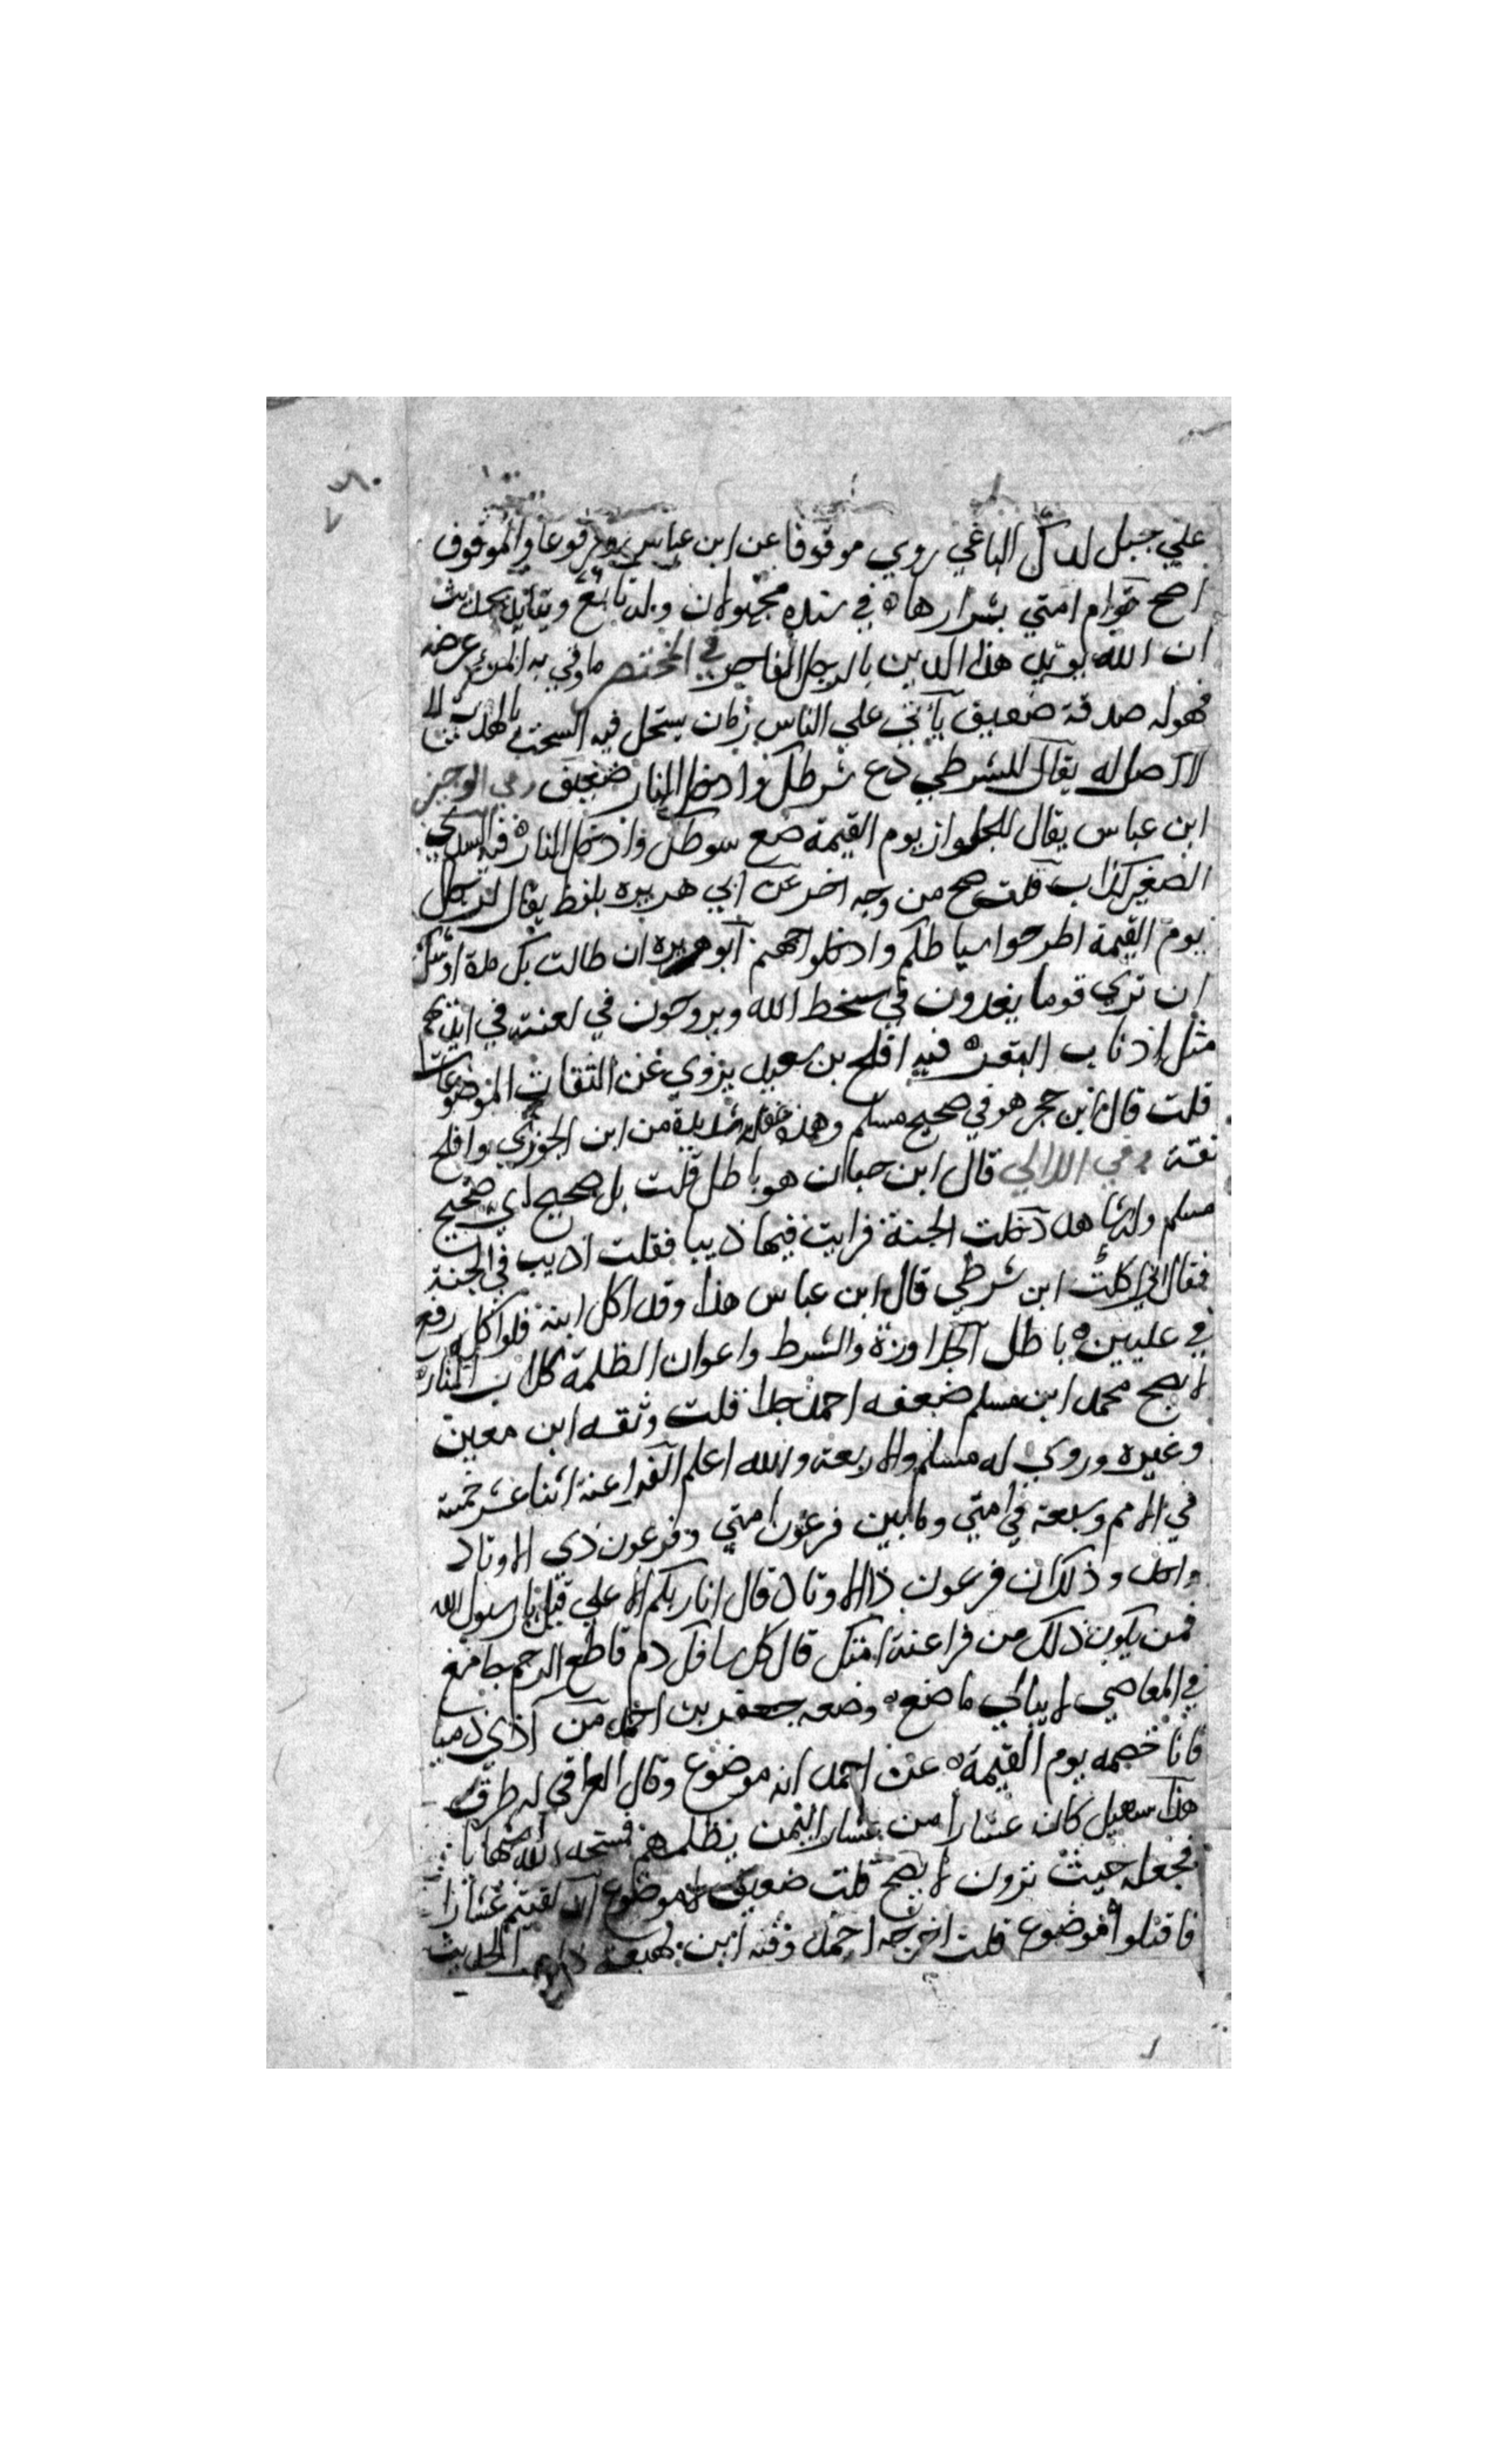 علي جبل لدك الباغي روي موقوفا عن ابن عباس ومرفوعا والموقوف
اصح قوام امتي بشرارها في سنده مجهولان وله تابع ويتايد بحديث
ان الله يؤيد هذا الدين بالرجل الفاجر في المختصر ما وقي به المرء عرضه
فهو له صدقة ضعيف يأتي علي الناس زمان يستحل فيه السحت بالهدية
لا اصل له يقال للشرطي دع شرطك وادخل النار ضعيف وفي الوجيز
ابن عباس يقال للجلواز يوم القيمة ضع سوطك وادخل النار فيه السدي
الصغير كذاب قلت صح من وجه اخر عن ابي هريرة بلفظ يقال لرجال
يوم القيمة اطرحوا سياطكم وادخلوا جهنم ابو هريرة ان طالت بك مدة اوشك
ان تري قوما يغدون في سخط الله ويروحون في لعنته في ايديهم
مثل اذناب البقر فيه افلح بن سعيد يروي عن الثقات الموضوعات
قلت قال ابن حجر هو في صحيح مسلم وهذه غفلة شديدة من ابن الجوزي وافلح
ثقة وفي اللالي قال ابن حبان هو باطل قلت بل صحيح اي صحيح
مسلم وله شاهد دخلت الجنة فرايت فيها ذيبا فقلت اذيب في الجنة
فقال اني اكلت ابن شرطي قال ابن عباس هذا وقد اكل ابنه فلو اكله رفع
في عليين باطل الجلاوزة والشرط واعوان الظلمة كلاب النار
لا يصح محمد ابن مسلم ضعفه احمد جدا قلت وثقه ابن معين
وغيره وروي له مسلم والاربعة والله اعلم الفراعنة اثنا عشر خمسة
في الامم وسبعة في امتي وما بين فرعون امتي وفرعون ذي الاوتاد
واحد وذلك ان فرعون ذا الاوتاد قال انا ربكم الاعلي قيل يا رسول الله
فمن يكون ذلك من فراعنة امتك قال كل سافك دم قاطع الرحم
في المعاصي لا يبالي ما صنع وضعه جعفر بن احمد من اذي ذميا
فانا خصمه يوم القيمة عن احمد انه موضوع وقال العراقي له طرق
هذا سهيل كان عشارا من عشار اليمن يظلمهم فمسخه الله شهابا
فجعله حيث ترون لا يصح قلت ضعيف لا موضوع ان لقيتم عشارا
فاقتلوا موضوع قلت اخرجه احمد وفيه ابن لهيعة الحديث